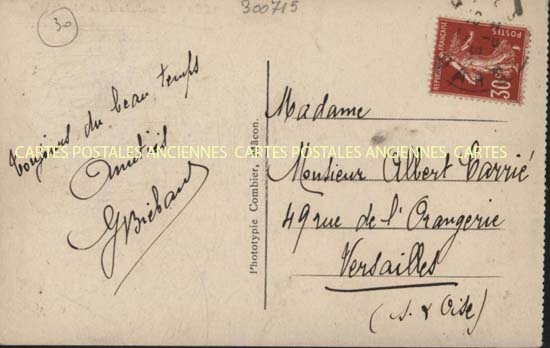 30
300715
POSTES
RÉPUBLIQUE FRANÇAISE
30c
Toujours du beau temps
Amitiés
GBiébaud
CARTES POSTALES ANCIENNES CARTES POSTALES ANCIENNES CARTES
Phototypie Combier, Mâcon.
Madame
Monsieur Albert Carrié
49 rue de l'Orangerie
Versailles
(S. & Oise)